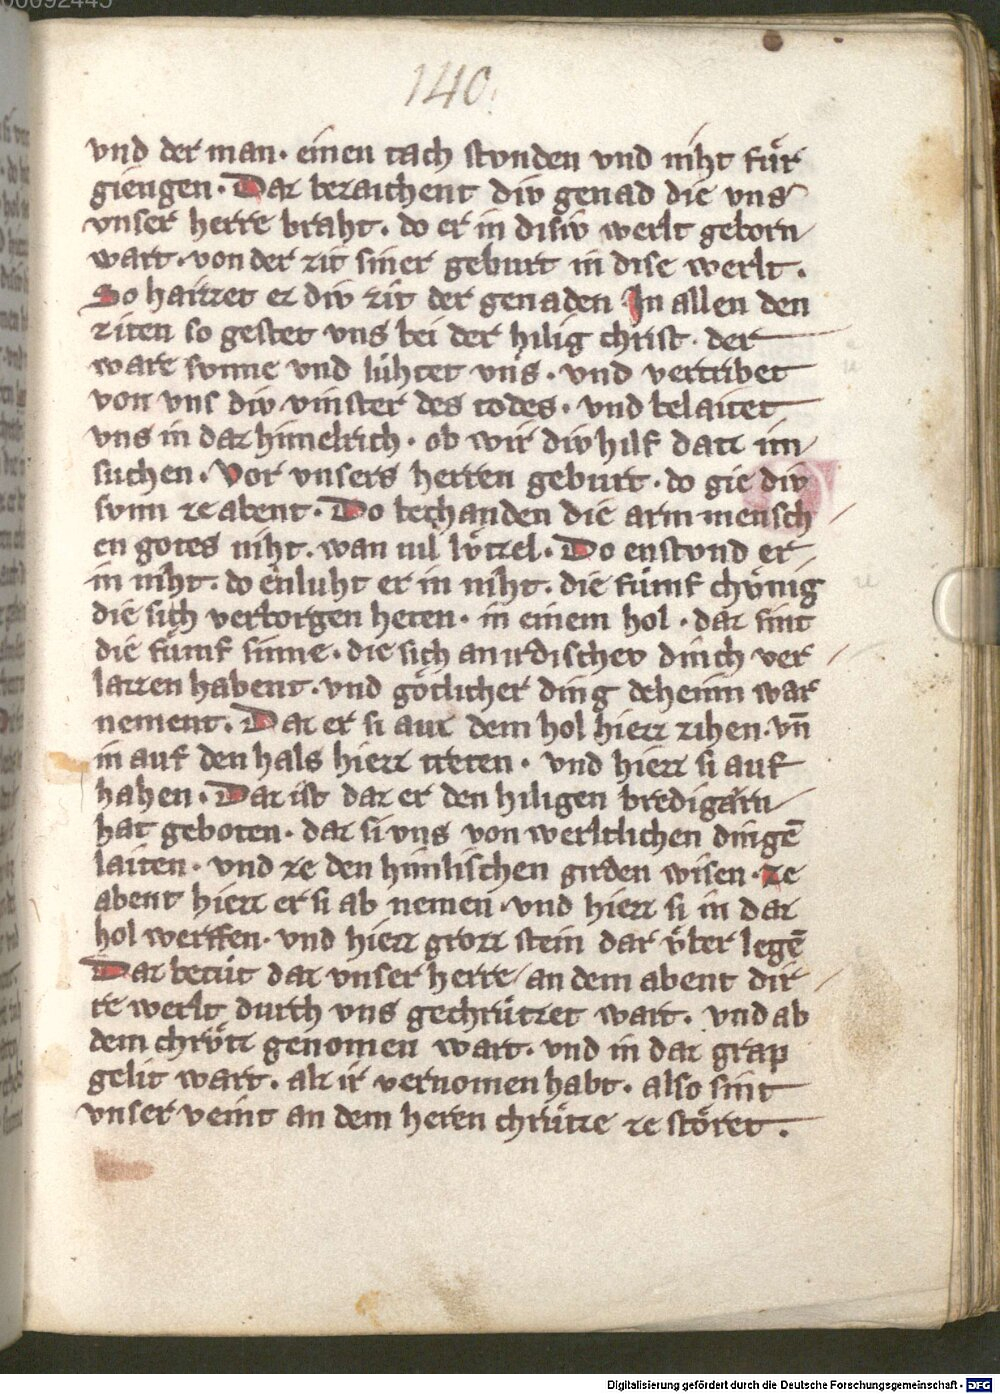 140.
vnd der man· einen tach stvnden vnd niht fuͤr
giengen· Daz bezaichent div genad die vns
vnser herre braht· do er in disiv werlt geborn
wart· von der zit siner geburt in dise werlt·
So haizzet ez div zit der genaden In allen den
ziten so gestet vns bei der hilig christ· der
ware svnne vnd luͤhtet vns· vnd vertribet
von vns div vinster des todes· vnd belaitet
vns in daz himelrich· ob wir div hilf datz im
suchen· Vor vnsers herren geburt· do gie div
svnn ze abent· Do bechanden die arm mensch
en gotes niht· wan vil lvͤtzel· Do enstvnd er
in niht· do enluht er in niht· die fuͤmf chvͤnig
die sich verborgen heten· in einem hol· daz sint
die fuͤmf sinne· die sich an irdischev dinch ver
lazzen habent· vnd goͤtlicher ding dehenin war
nement· Daz er si auz dem hol hiezz zihen· vn̄
in auf den hals hiezz treten· vnd hiezz si auf
hahen· Daz ist daz er den hiligen bredigaͤrn
hat geboten· daz si vns von werltlichen dingē
laiten· vnd ze den himlischen girden wisen· ze
abent hiezz er si ab nemen· vnd hiezz si in daz
hol werffen· vnd hiezz grozz stein dar vͤber legē
Daz betuͤt daz vnser herre an dem abent dir
re werlt durch vns gechruͤtzet wart· vnd ab
dem chrvͤtz genomen wart· vnd in daz grap
gelit wart· alz ir vernomen habt· also sint
vnser veint an dem heren chruͤtze ze stoͤret·
Digitalisierung gefördert durch die Deutsche Forschungsgemeinschaft - DFG